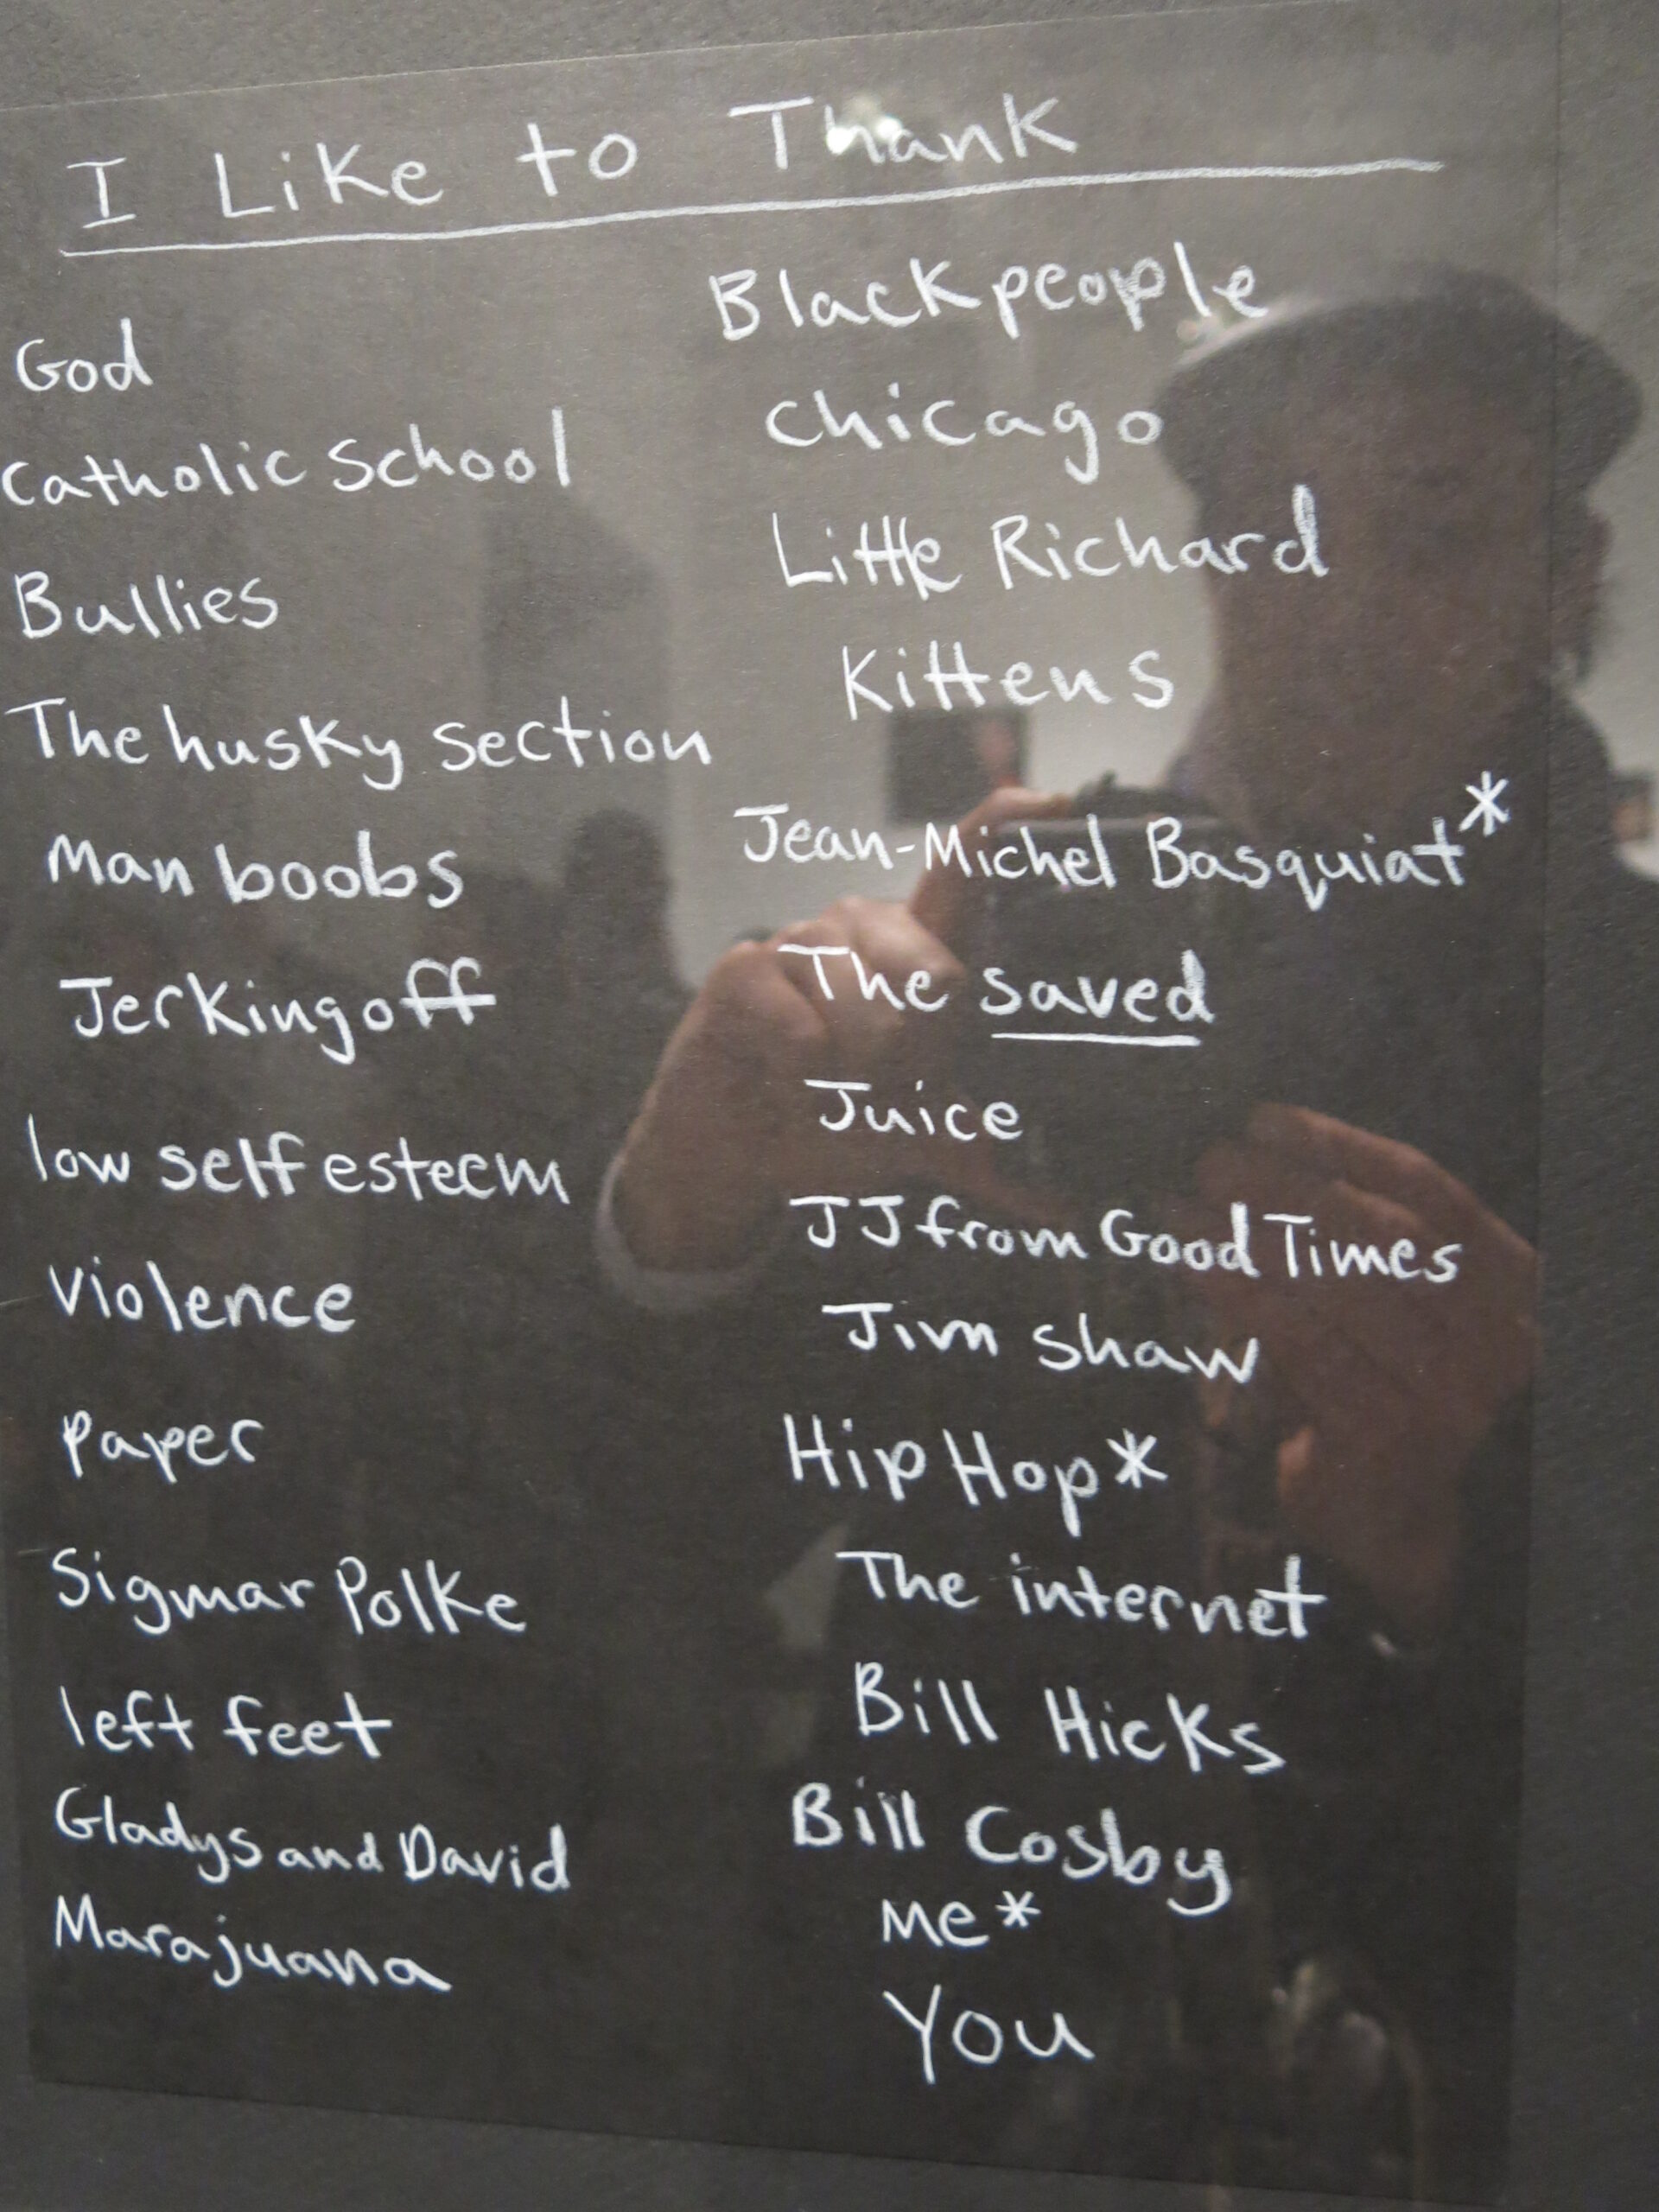 I Like to Thank
God
Catholic School
Bullies
The husky section
Man boobs
Jerking off
low self esteem
Violence
Paper
Sigmar Polke
left feet
Gladys and David
Marajuana
Black people
Chicago
Little Richard
Kittens
Jean-Michel Basquiat*
The saved
Juice
JJ from Good Times
Jim Shaw
Hip Hop*
The internet
Bill Hicks
Bill Cosby
Me*
You